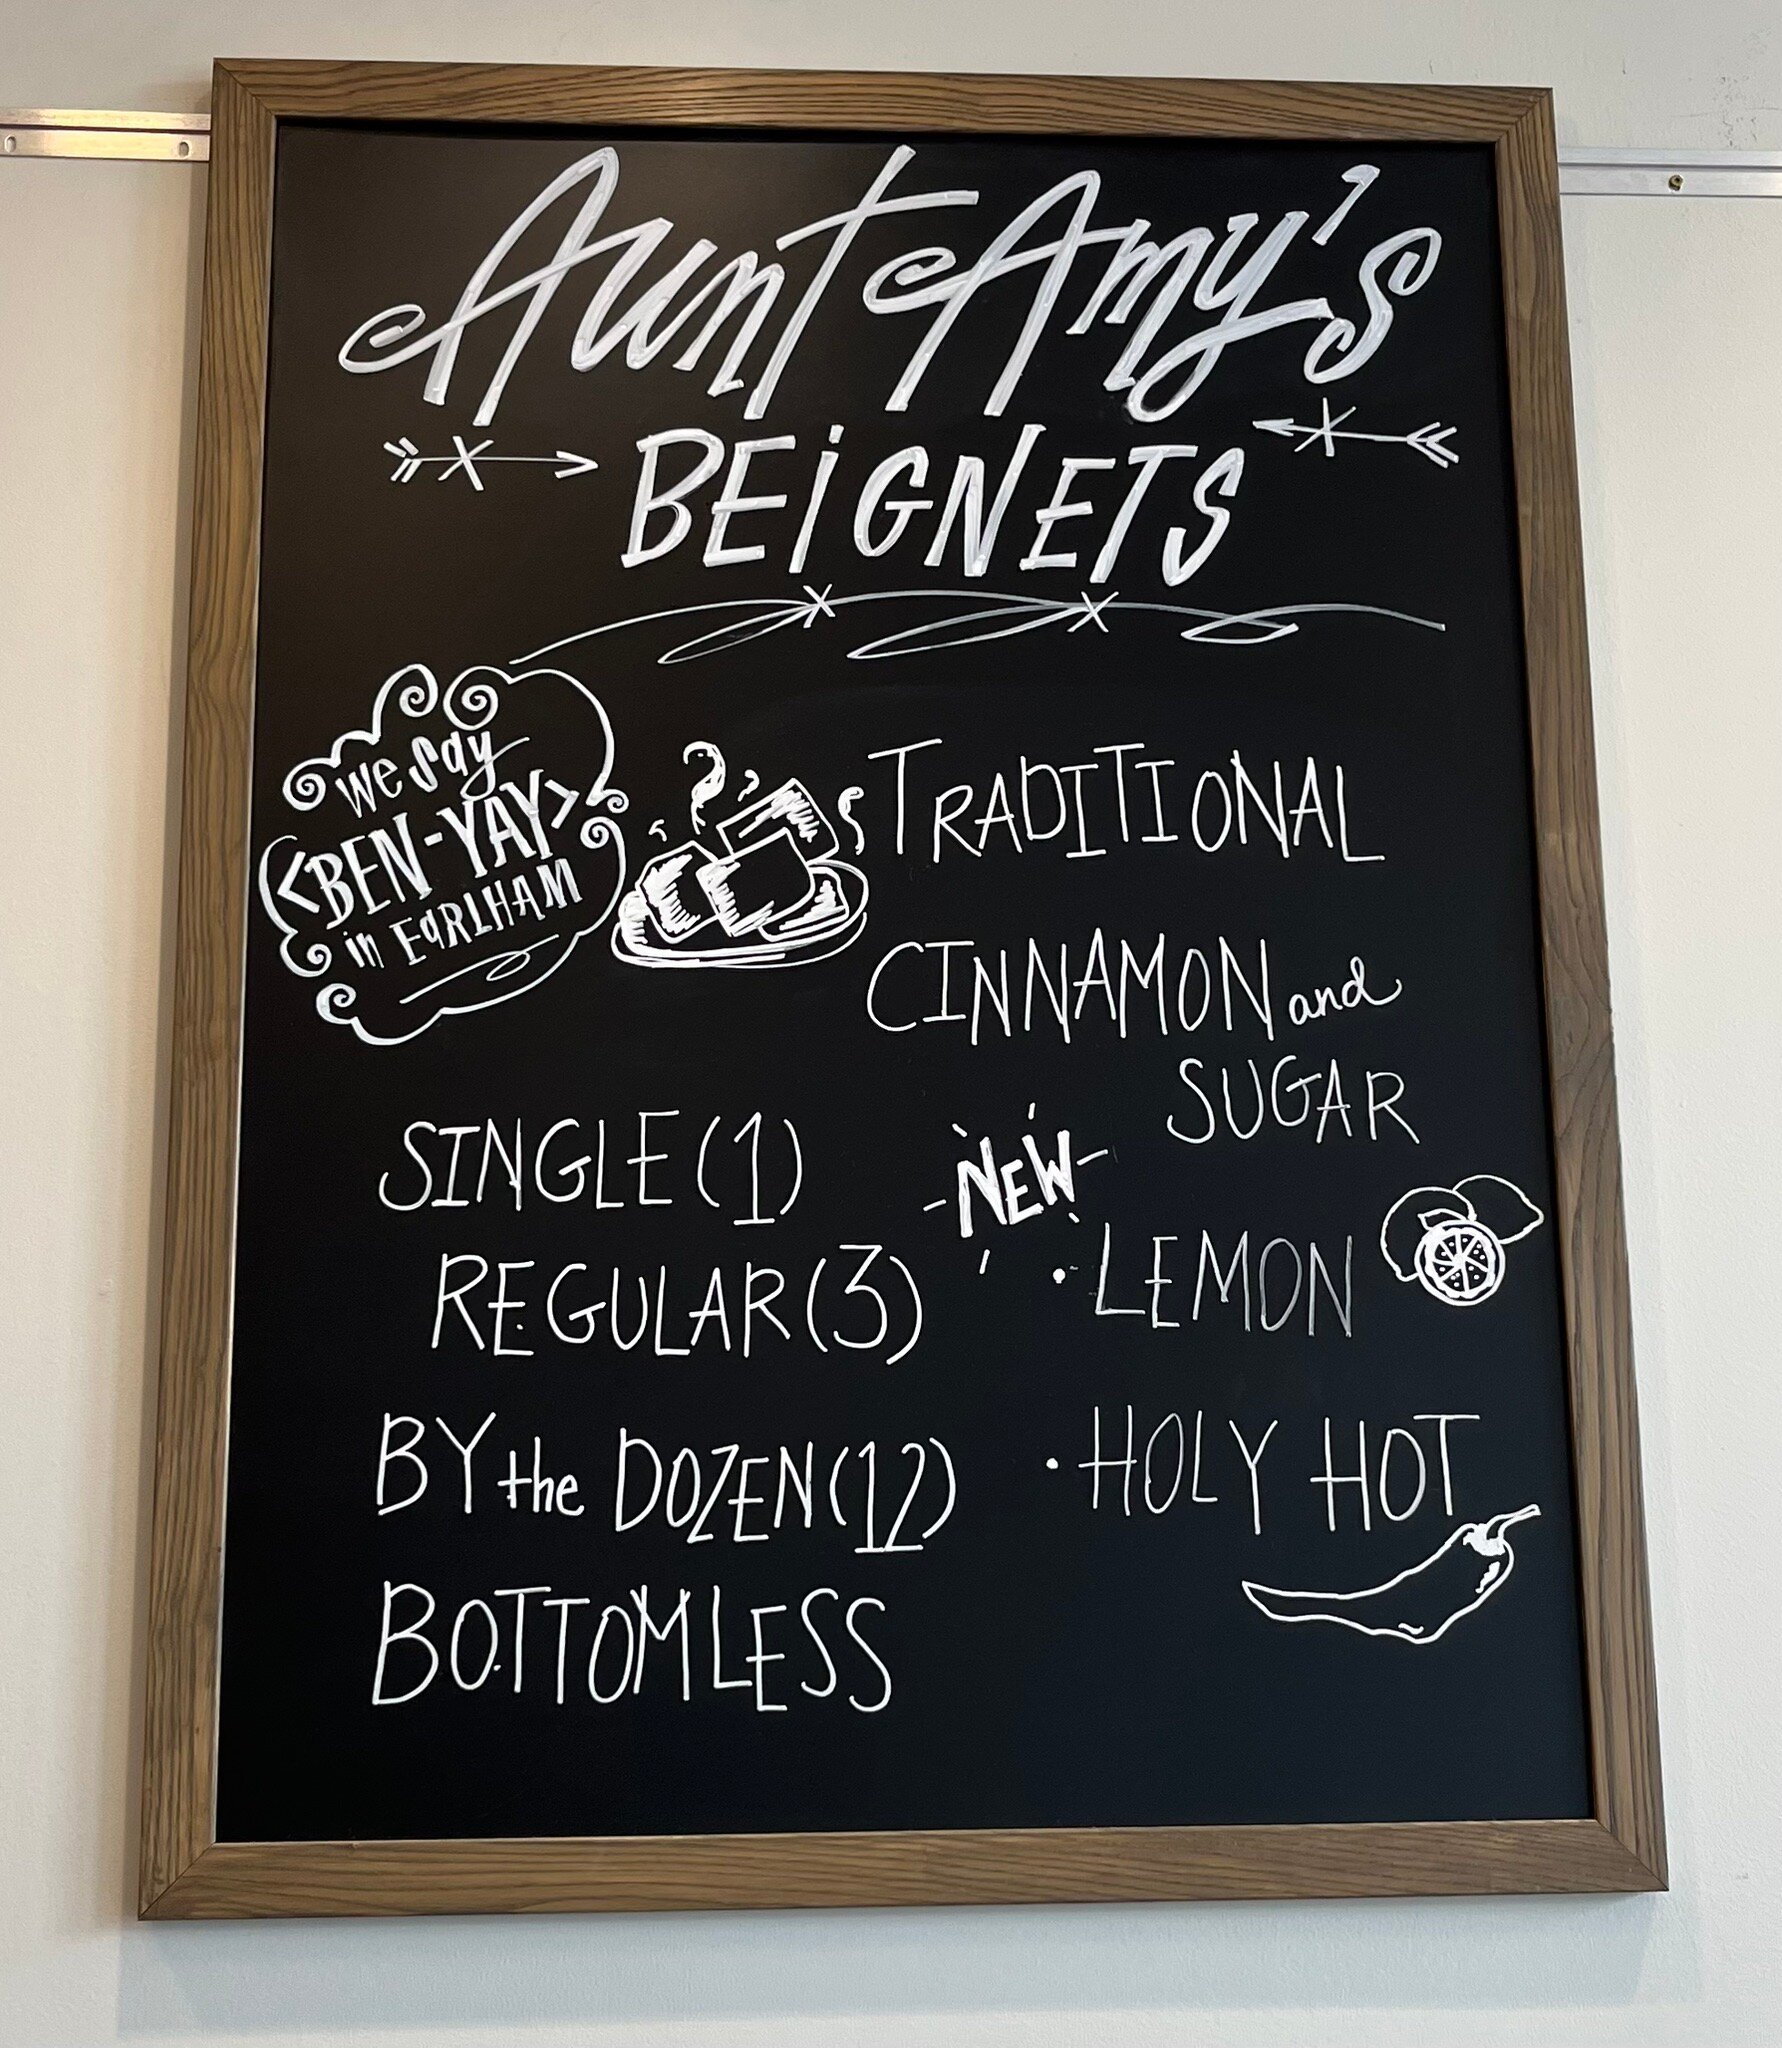 Aunt Amy's
BEIGNETS
We say
<BEN-YAY>
in EARLHAM
TRADITIONAL
CINNAMON and
SUGAR
NEW
• LEMON
• HOLY HOT
SINGLE (1)
REGULAR (3)
BY the DOZEN (12)
BOTTOMLESS